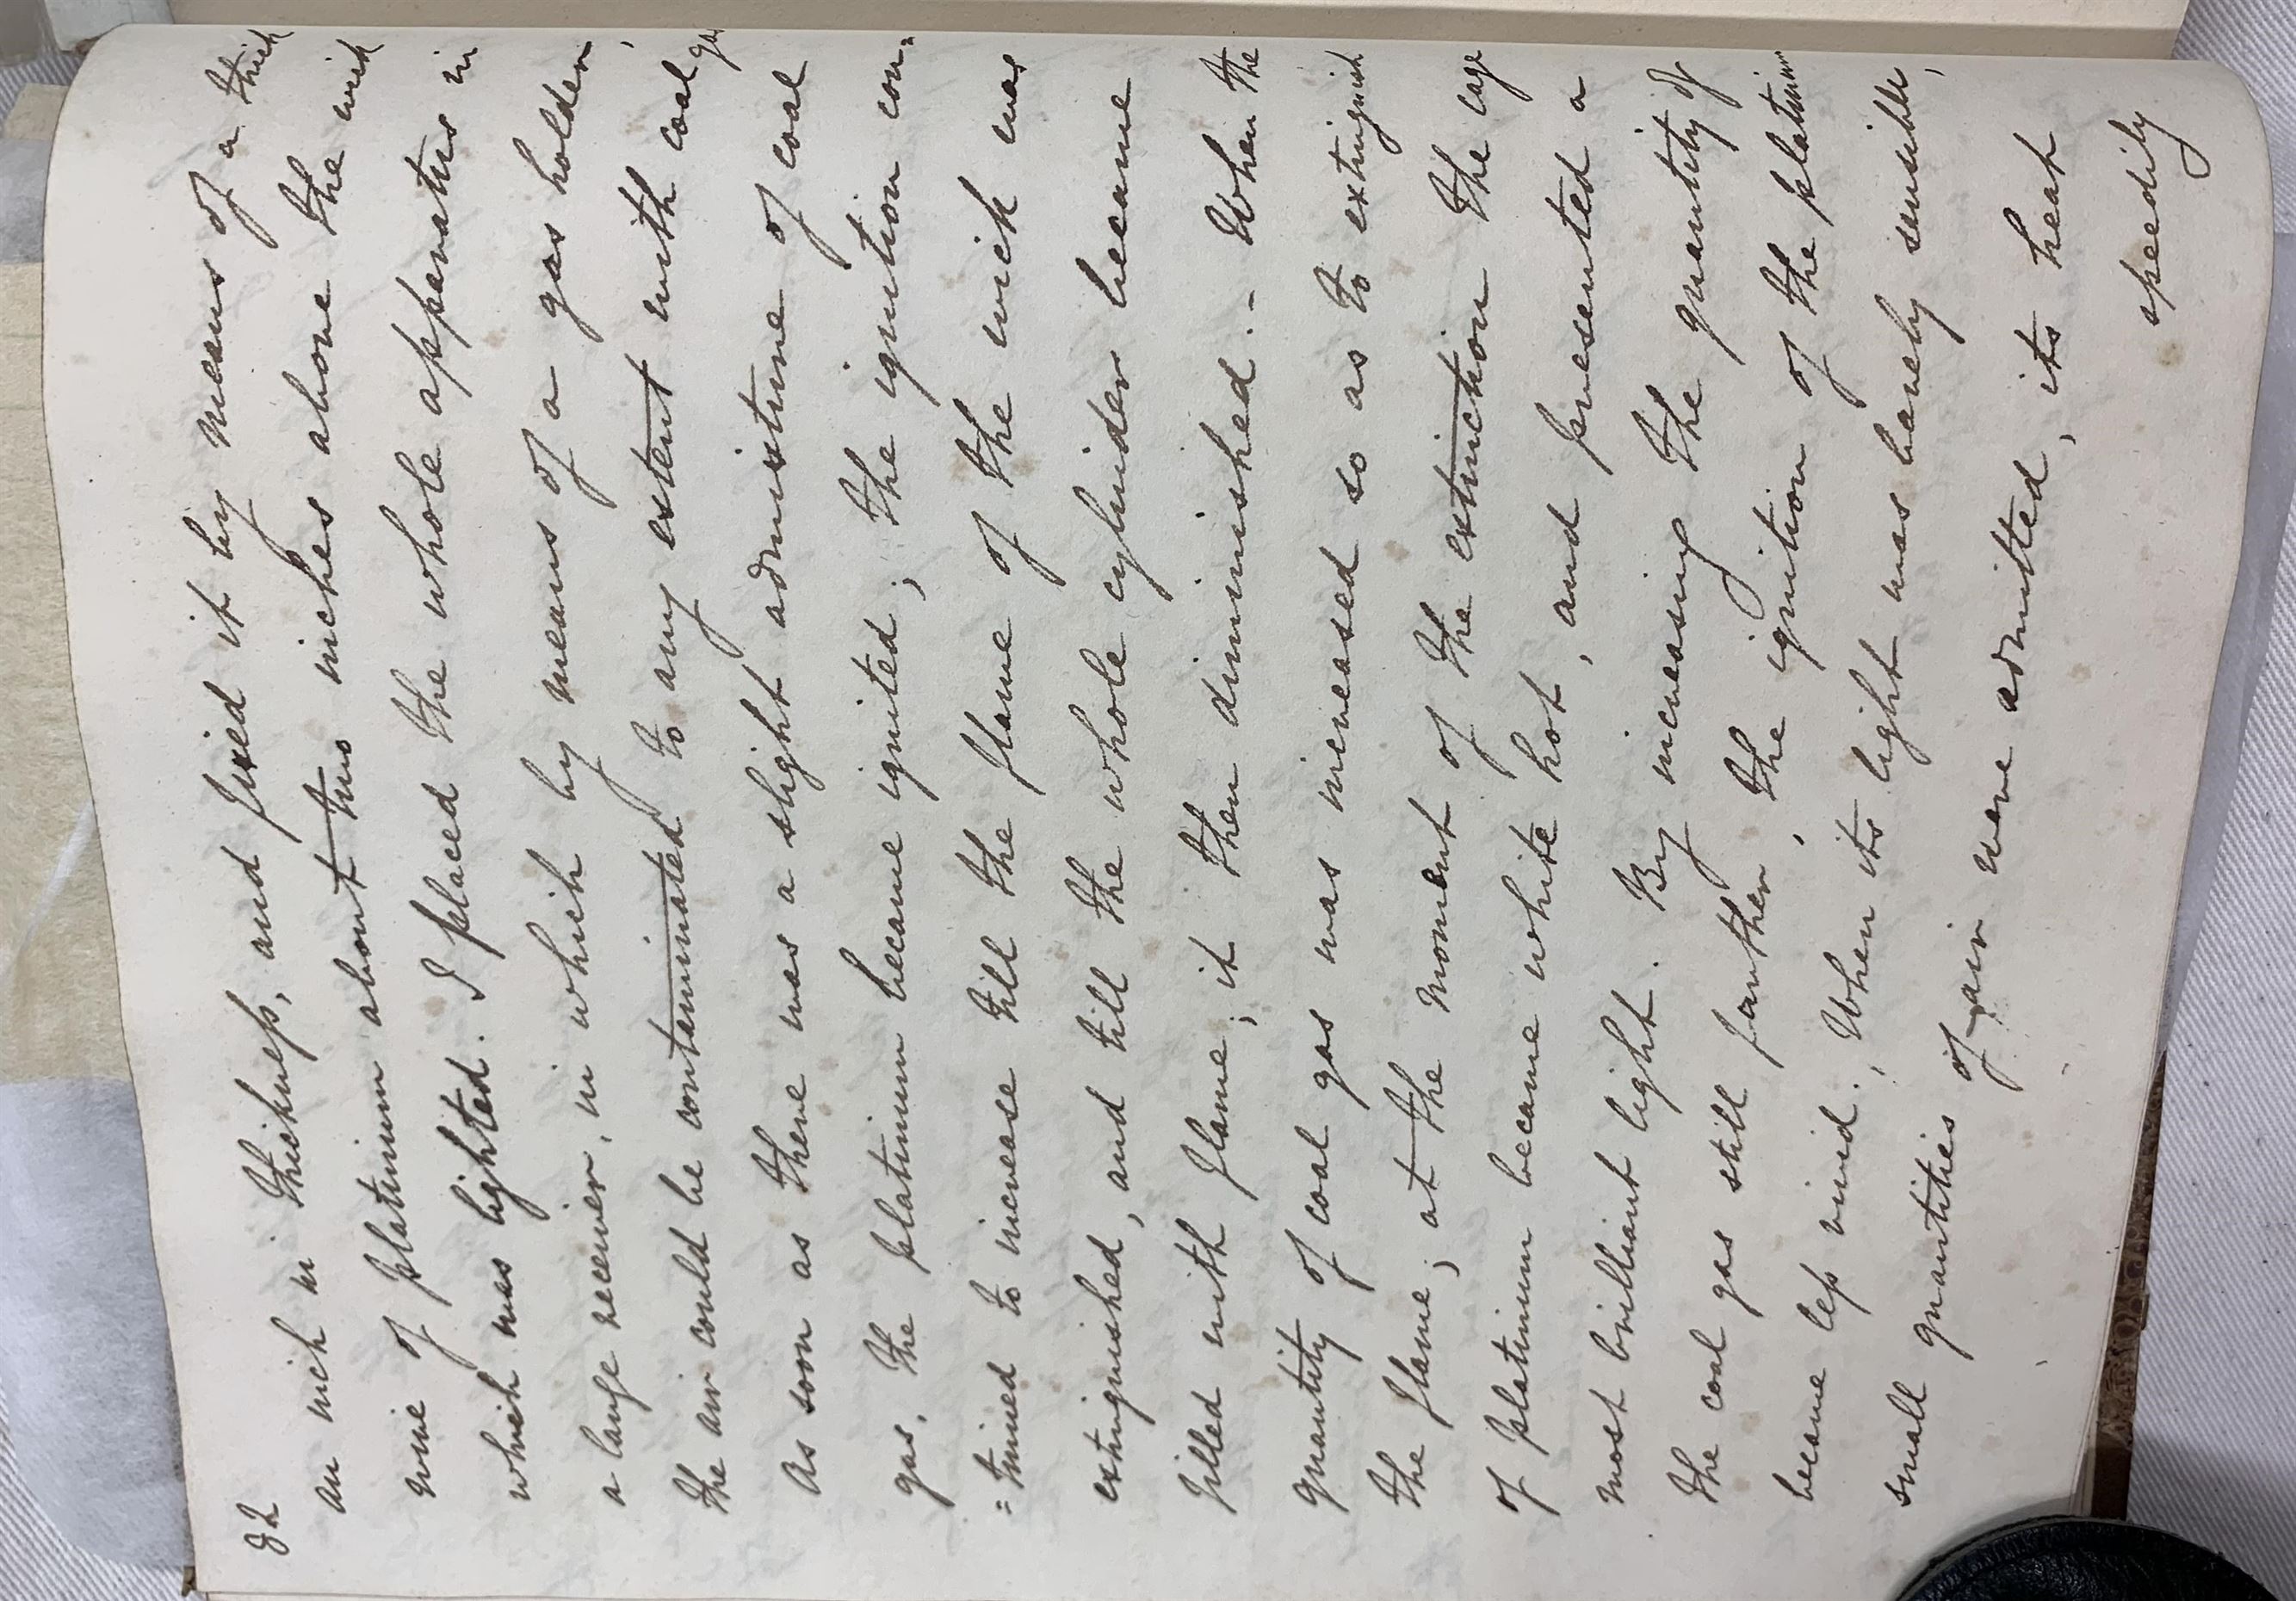 82
an inch in thickness, and fixed it by means of a thick
wire of platinum about two inches above the wick
which was lighted. I placed the whole apparatus in
a large receiver, in which by means of a gas holder,
the air could be contaminated to any extent with coal gas
As soon as there was a slight admixture of coal
gas, the platinum became ignited; the ignition con=
=tinued to increase till the flame of the wick was
extinguished, and till the whole cylinder became
filled with flame; it then diminished. - When the
quantity of coal gas was increased so as to extinguish
the flame; at the moment of the extinction the cage
of platinum became white hot, and presented a
most brilliant light. By increasing the quantity of
the coal gas still farther, the ignition of the platinum
became less vivid; When its light was barely sensible,
small quantities of air were admitted, its heat
speedily